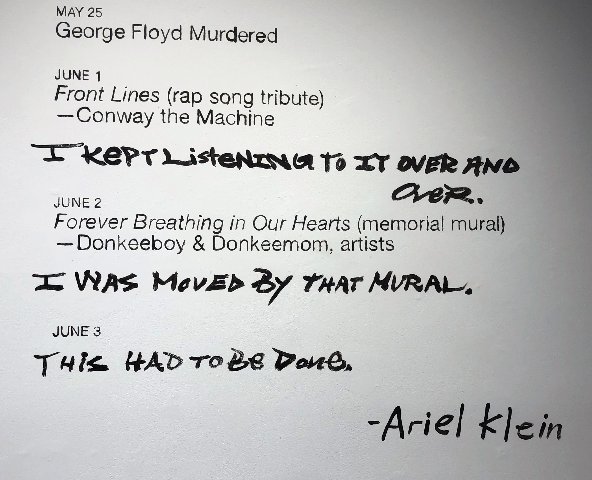 MAY 25
George Floyd Murdered
JUNE 1
Front Lines (rap song tribute)
—Conway the Machine
I KEPT LISTENING TO IT OVER AND
OVER..
JUNE 2
Forever Breathing in Our Hearts (memorial mural)
—Donkeeboy & Donkeemom, artists
I WAS MOVED BY THAT MURAL.
JUNE 3
THIS HAD TO BE DONE.
-Ariel Klein